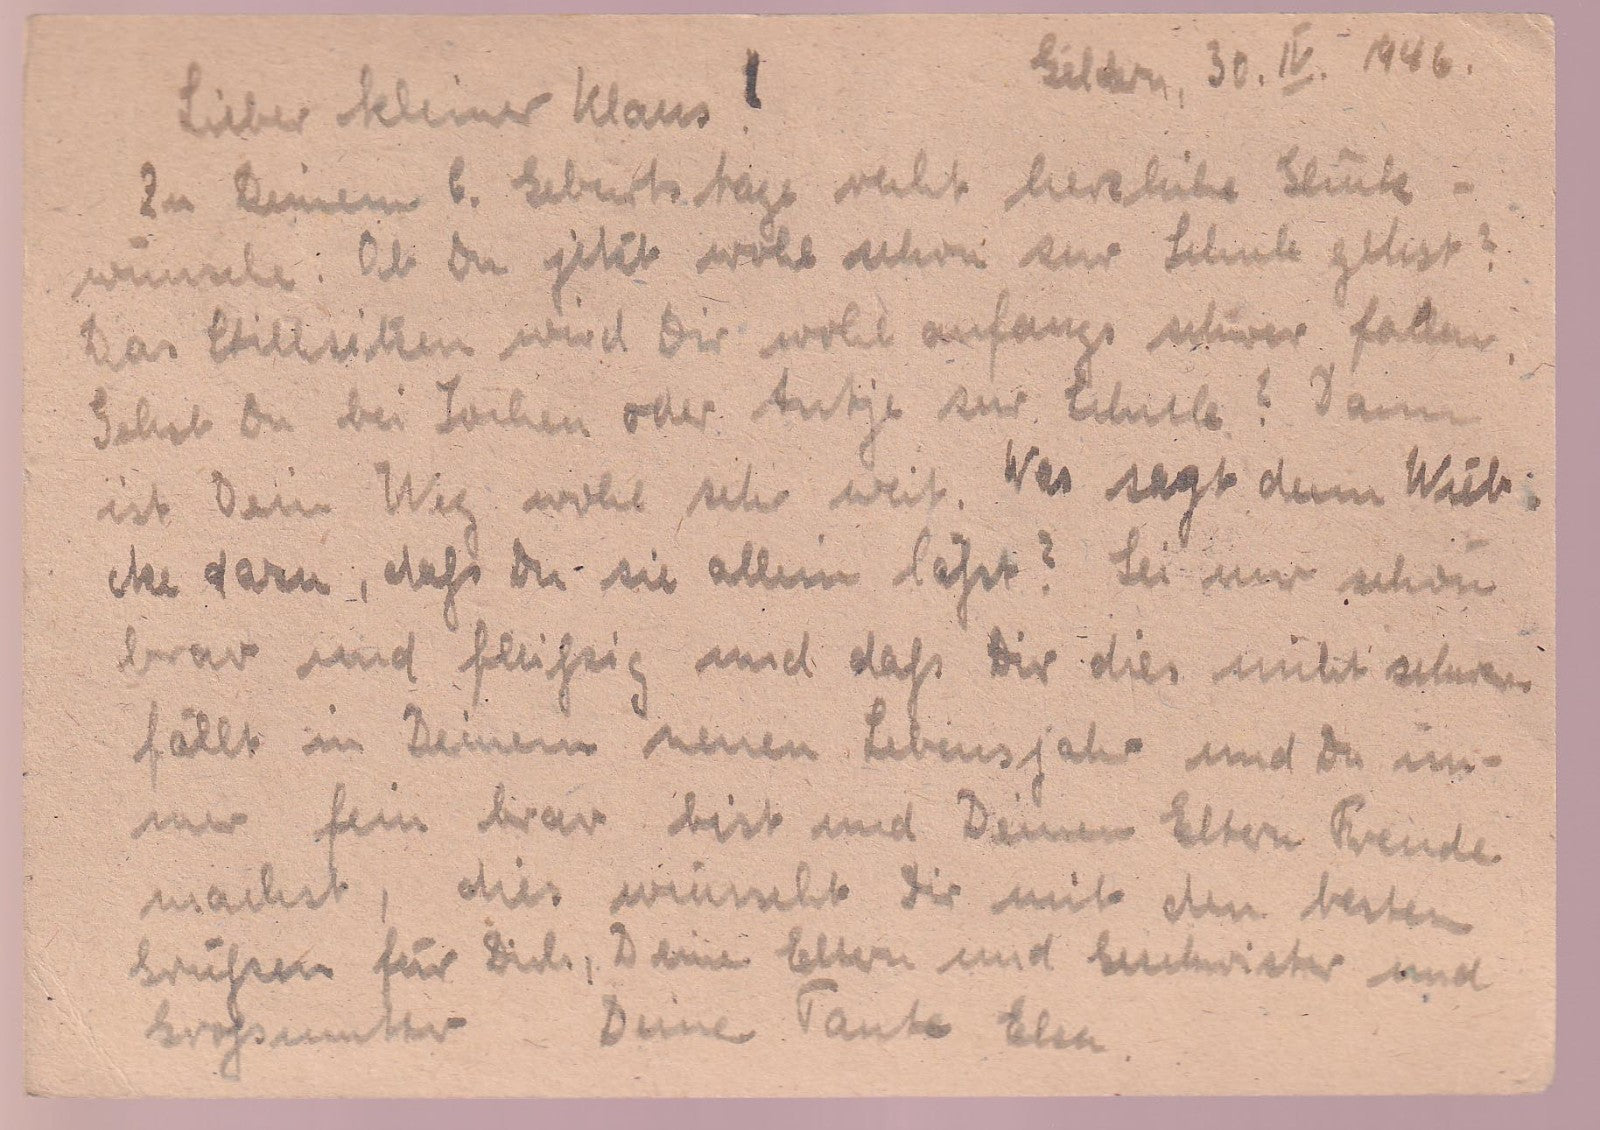 Geldern, 30. IV. 1946.
Lieber kleiner Klaus!
Zu Deinem 6. Geburtstage recht herzliche Glück-
wünsche. Ob Du jetzt wohl schon zur Schule gehst?
Das Stillsitzen wird Dir wohl anfangs schwer fallen.
Gehst Du bei Jochen oder Antje zur Schule? Dann
ist Dein Weg wohl sehr weit. Was sagt denn Wieb-
cke dazu, daß Du sie allein läßt? Sei nur schön
brav und fleißig und daß Dir dies nicht schwer
fällt in Deinem neuen Lebensjahr und Du im-
mer fein brav bist und Deinen Eltern Freude
machst, dies wünscht Dir mit den besten
Grüßen für Dich, Deine Eltern und Geschwister und
Großmutter Deine Tante Elsa.